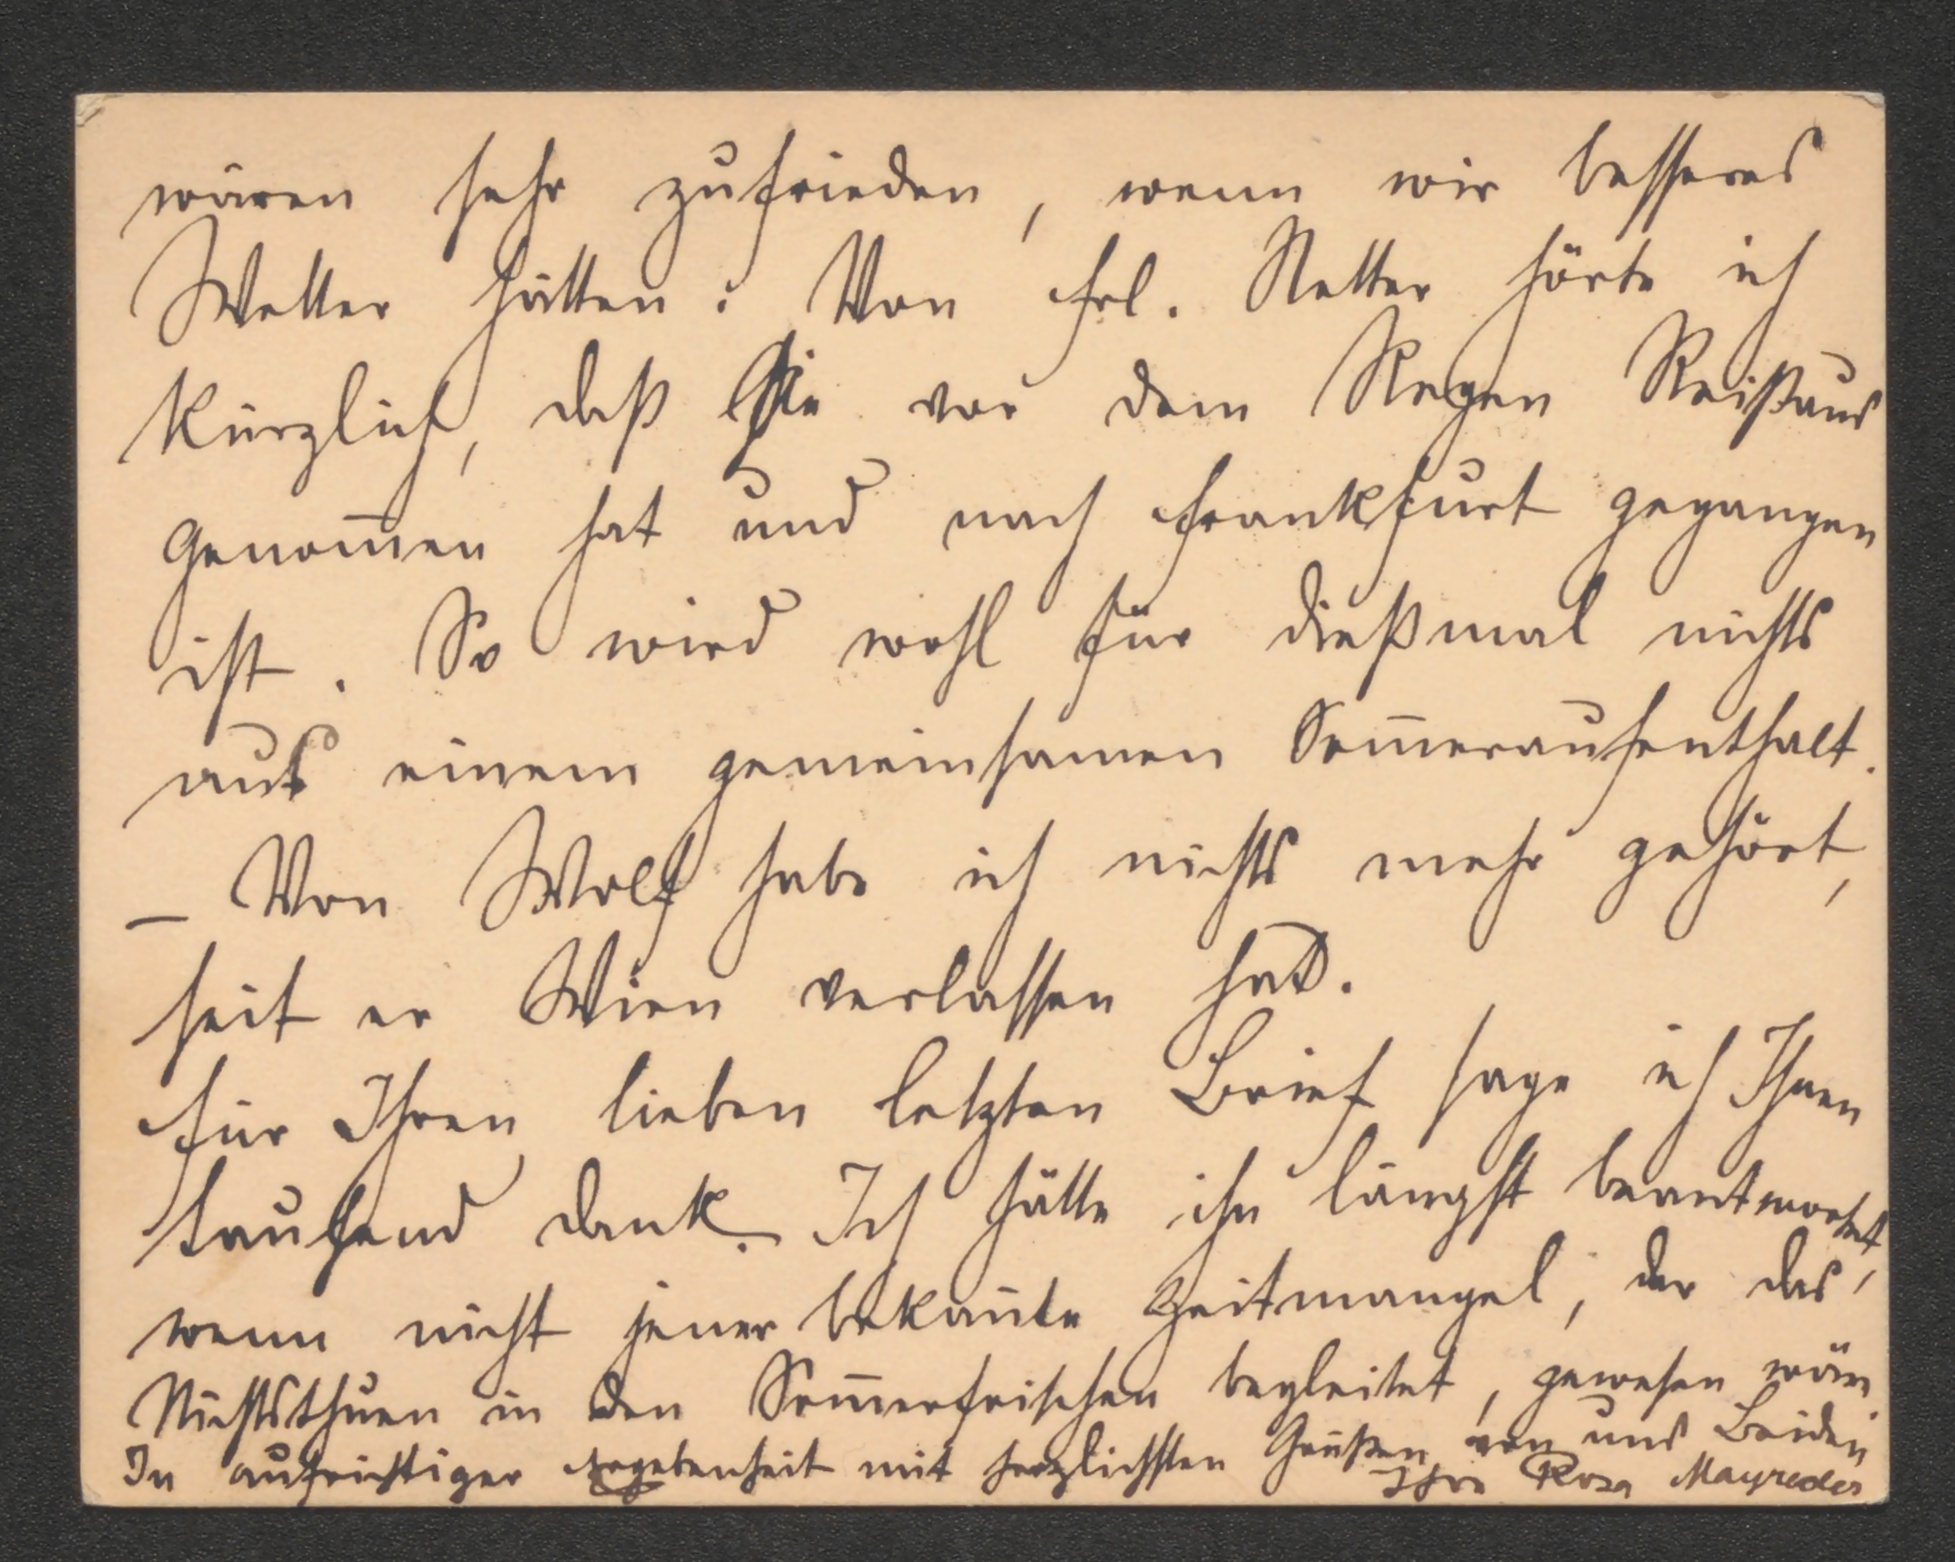 wären sehr zufrieden, wenn wir besseres
Wetter hätten. Von Frl. Netter hörte ich
kürzlich, daß sie vor dem Regen Reißaus
genom̅en hat und nach Frankfurt gegangen
ist. So wird wohl für dießmal nichts
aus einem gemeinsamen Som̅eraufenthalt.
– Von Wolf habe ich nichts mehr gehört,
seit er Wien verlassen hat.
Für Ihren lieben letzten Brief sage ich Ihnen
tausend Dank. Ich hätte ihn längst beantwortet,
wenn nicht jener bekan̅te Zeitmangel, der das
Nichtsthuen in den Som̅erfrischen begleitet, gewesen wäre.
In aufrichtiger Ergebenheit mit herzlichsten Grüßen von uns Beiden
Ihre Rosa Mayreder